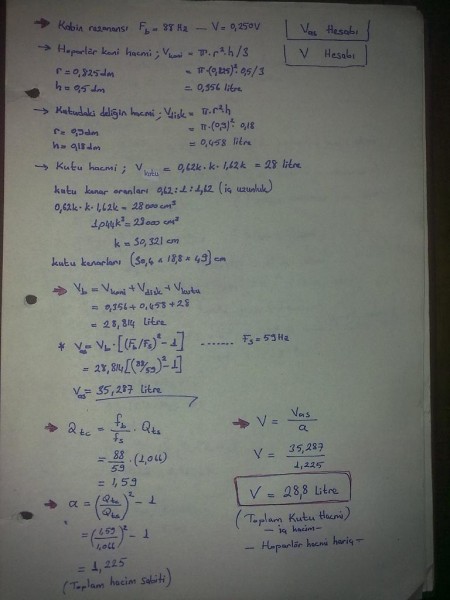 → Kabin rezonansı F_b = 88 Hz — V = 0,250V
Vas Hesabı
V Hesabı
→ Hoparlör koni hacmi ; V_koni = π.r².h/3
r = 0,825 dm = π.(0,825)².0,5/3
h = 0,5 dm = 0,356 litre
→ Kutudaki deliğin hacmi ; V_disk = π.r².h
r = 0,9 dm = π.(0,9)².0,18
h = 0,18 dm = 0,458 litre
→ Kutu hacmi ; V_kutu = 0,62k . k . 1,62k = 28 litre
kutu kenar oranları 0,62 : 1 : 1,62 (iç uzunluk)
0,62k . k . 1,62k = 28000 cm³
1,044k³ = 28000 cm³
k = 30,321 cm
kutu kenarları (30,4 x 18,8 x 49) cm
→ V_b = V_koni + V_disk + V_kutu
= 0,356 + 0,458 + 28
= 28,814 litre
* V_as = V_b . [(F_b/F_s)² - 1] ....... F_s = 59 Hz
= 28,814 [(88/59)² - 1]
V_as = 35,287 litre
→ Q_tc = f_b/f_s . Q_ts
= 88/59 . (1,066)
= 1,59
→ a = (Q_tc/Q_ts)² - 1
= (1,59/1,066)² - 1
= 1,225
(Toplam hacim sabiti)
→ V = V_as/a
V = 35,287/1,225
V = 28,8 litre
(Toplam Kutu Hacmi)
— iç hacim —
— Hoparlör hacmi hariç —